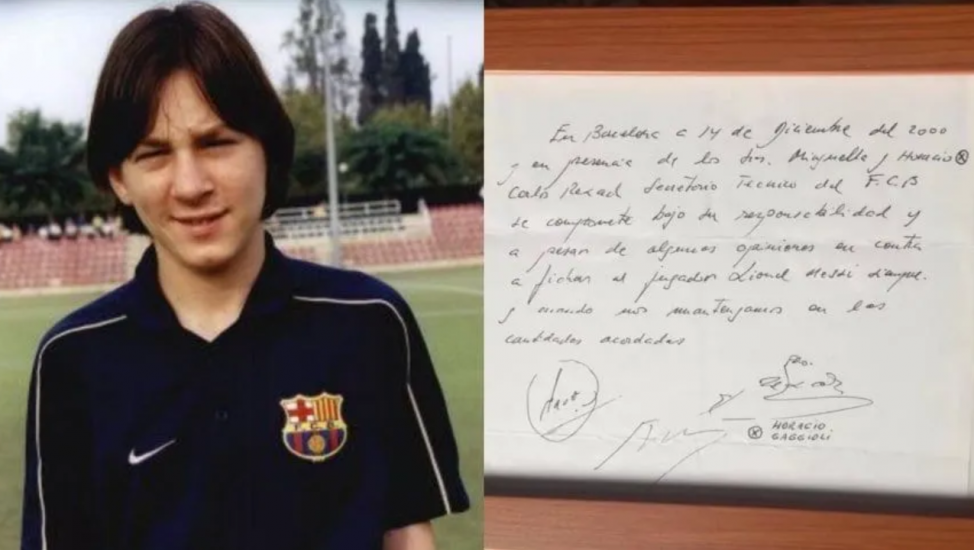 En Barcelona a 14 de Diciembre del 2000
y en presencia de los Srs. Minguella y Horacio
Carlos Rexach Secretario Técnico del F.C.B
se compromete bajo su responsabilidad y
a pesar de algunas opiniones en contra
a fichar al jugador Lionel Messi siempre
y cuando nos mantengamos en las
cantidades acordadas
HORACIO
GAGGIOLI
F C B